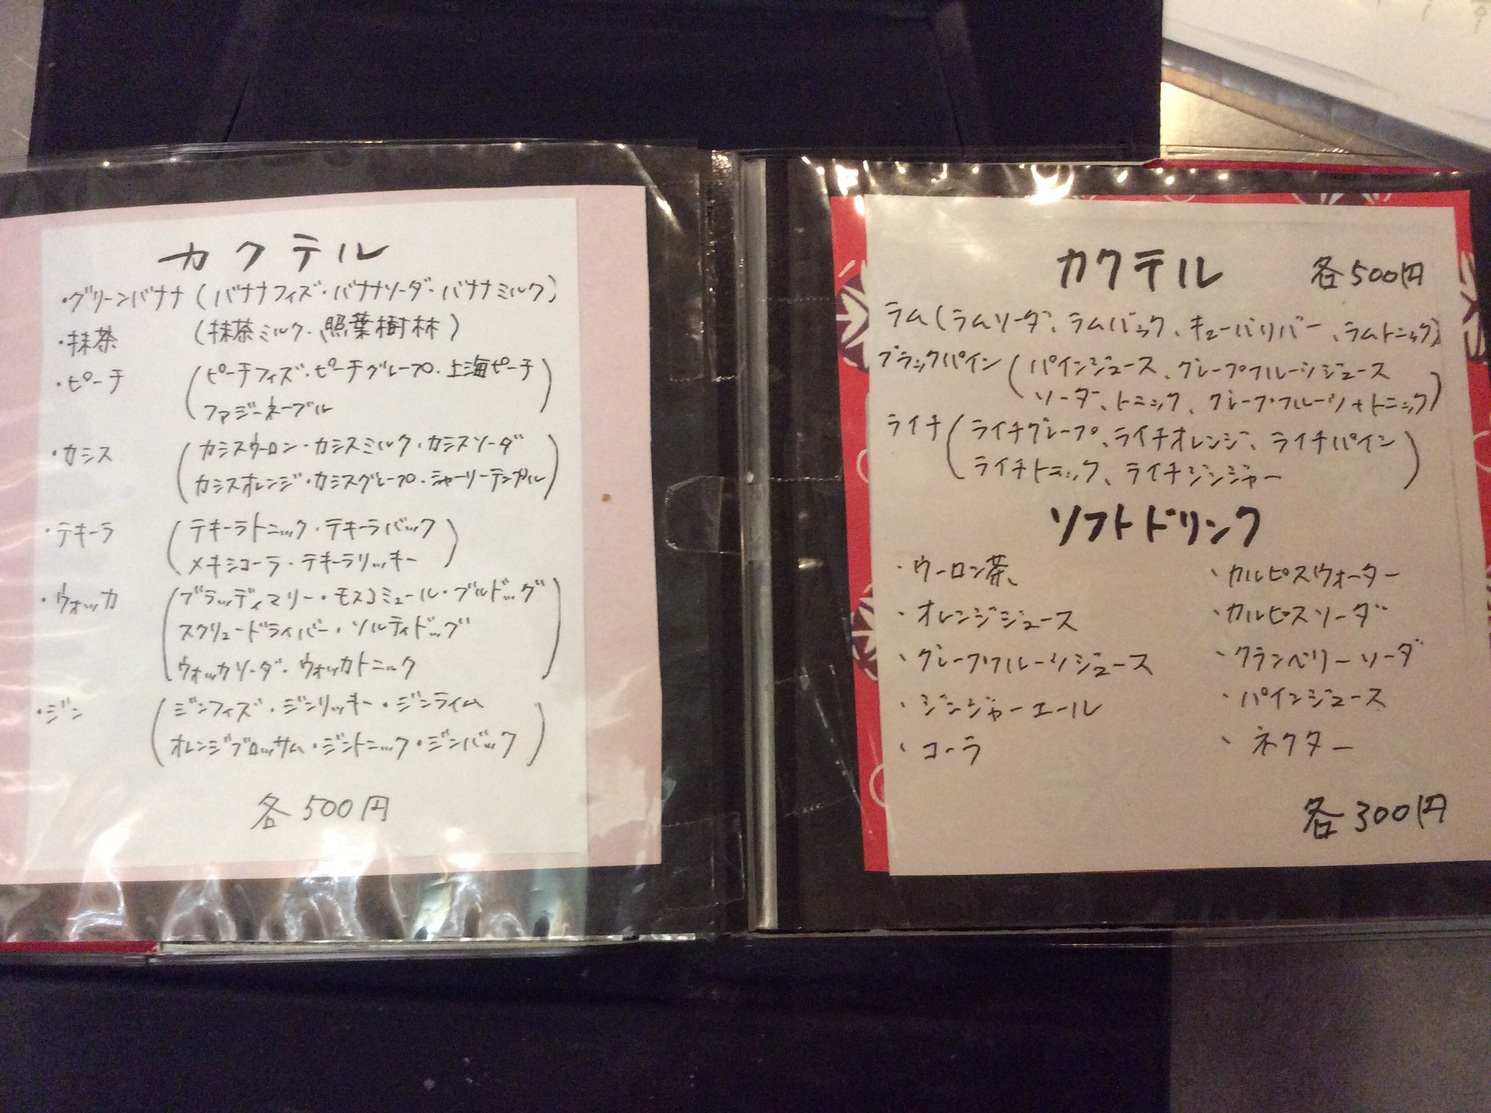 カクテル
・グリーンバナナ (バナナフィズ・バナナソーダ・バナナミルク)
・抹茶 (抹茶ミルク・照葉樹林)
・ピーチ (ピーチフィズ・ピーチグレープ・上海ピーチ
ファジーネーブル)
・カシス (カシスウーロン・カシスミルク・カシスソーダ
カシスオレンジ・カシスグレープ・シャーリーテンプル)
・テキーラ (テキーラトニック・テキーラバック
メキシコーラ・テキーラリッキー)
・ウォッカ (ブラッディマリー・モスコミュール・ブルドッグ
スクリュードライバー・ソルティドッグ
ウォッカソーダ・ウォッカトニック)
・ジン (ジンフィズ・ジンリッキー・ジンライム
オレンジブロッサム・ジントニック・ジンバック)
各500円
カクテル 各500円
ラム (ラムソーダ、ラムバック、キューバリバー、ラムトニック)
ブラックパイン (パインジュース、グレープフルーツジュース
ソーダ、トニック、グレープフルーツ+トニック)
ライチ (ライチグレープ、ライチオレンジ、ライチパイン
ライチトニック、ライチジンジャー)
ソフトドリンク
・ウーロン茶
・オレンジジュース
・グレープフルーツジュース
・ジンジャーエール
・コーラ
・カルピスウォーター
・カルピスソーダ
・クランベリーソーダ
・パインジュース
・ネクター
各300円